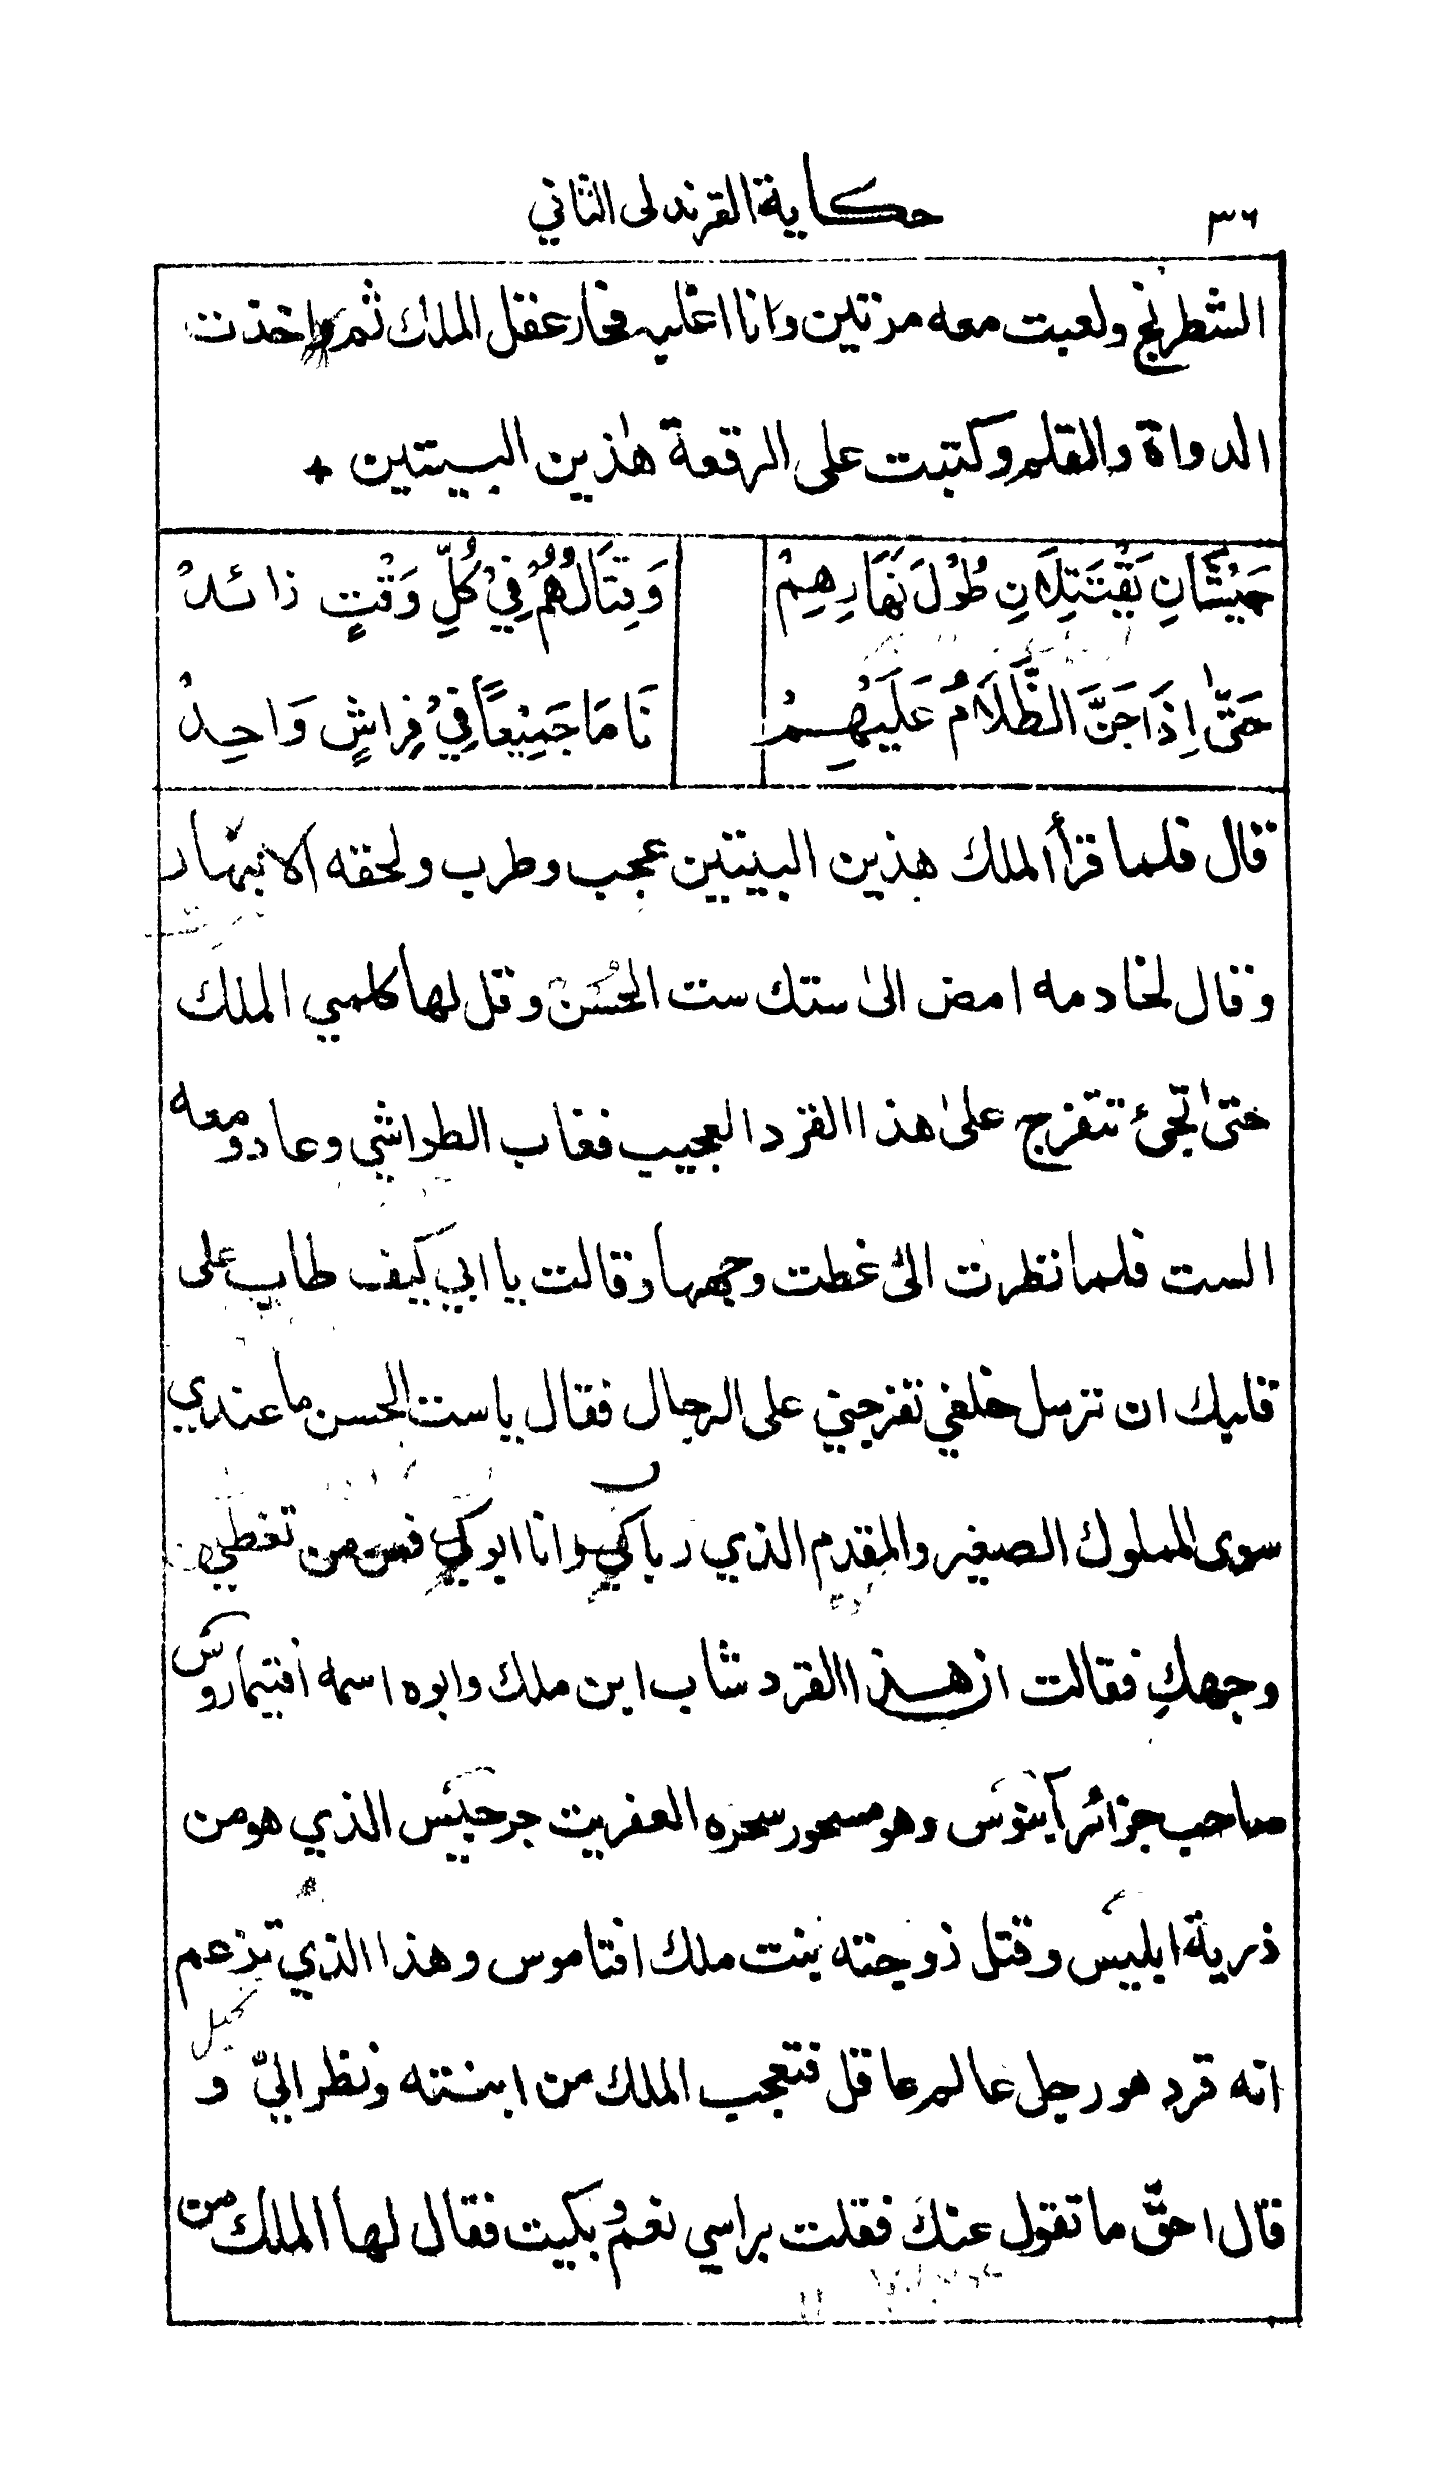 ٣٦ حكاية القرندلى الثاني
الشطرنج ولعبت معه مرتين وانا اغلبه فحار عقل الملك ثم واخذت
الدواة والقلم وكتبت على الرقعة هٰذين البيتين +
جَيْشَانِ يَقْتَتِلَانِ طُوْلَ نَهَارِهِمْ وَقِتَالُهُمْ فِيْ كُلِّ وَقْتٍ زائدْ
حَتّٰى اِذَا جَنَّ الظَّلَامُ عَلَيْهِمْ نَامَا جَمِيْعًا فِيْ فِراشٍ وَاحِدْ
قال فلما قرأ الملك هذين البيتين عجب وطرب ولحقه الانبهار
وقال لخادمه امض الىٰ ستك ست الحُسْن وقل لها كلمي الملك
حتىٰ تجيء تتفرج علىٰ هذا القرد العجيب فغاب الطواشي وعاد ومعه
الست فلما نظرت الىّ غطت وجهها وقالت يا ابي كيف طاب على
قلبك ان ترسل خلفي تفرجني على الرجال فقال يا ست الحسن ما عندي
سوى المملوك الصغير والمقدم الذي رباكي وانا ابوكي فمن من تغطي
وجهكِ فقالت ان هذا القرد شاب ابن ملك وابوه اسمه افتيماروس
صاحب جزائر آبنوس وهو مسحور سحره العفريت جرجيس الذي هو من
ذرية ابليس وقتل زوجته بنت ملك افتاموس وهذا الذي تزعم
انه قرد هو رجل عالم عاقل فتعجب الملك من ابنته ونظر اليّ و
قال احقّ ما تقول عنكَ فقلت براسي نعم وبكيت فقال لها الملك من